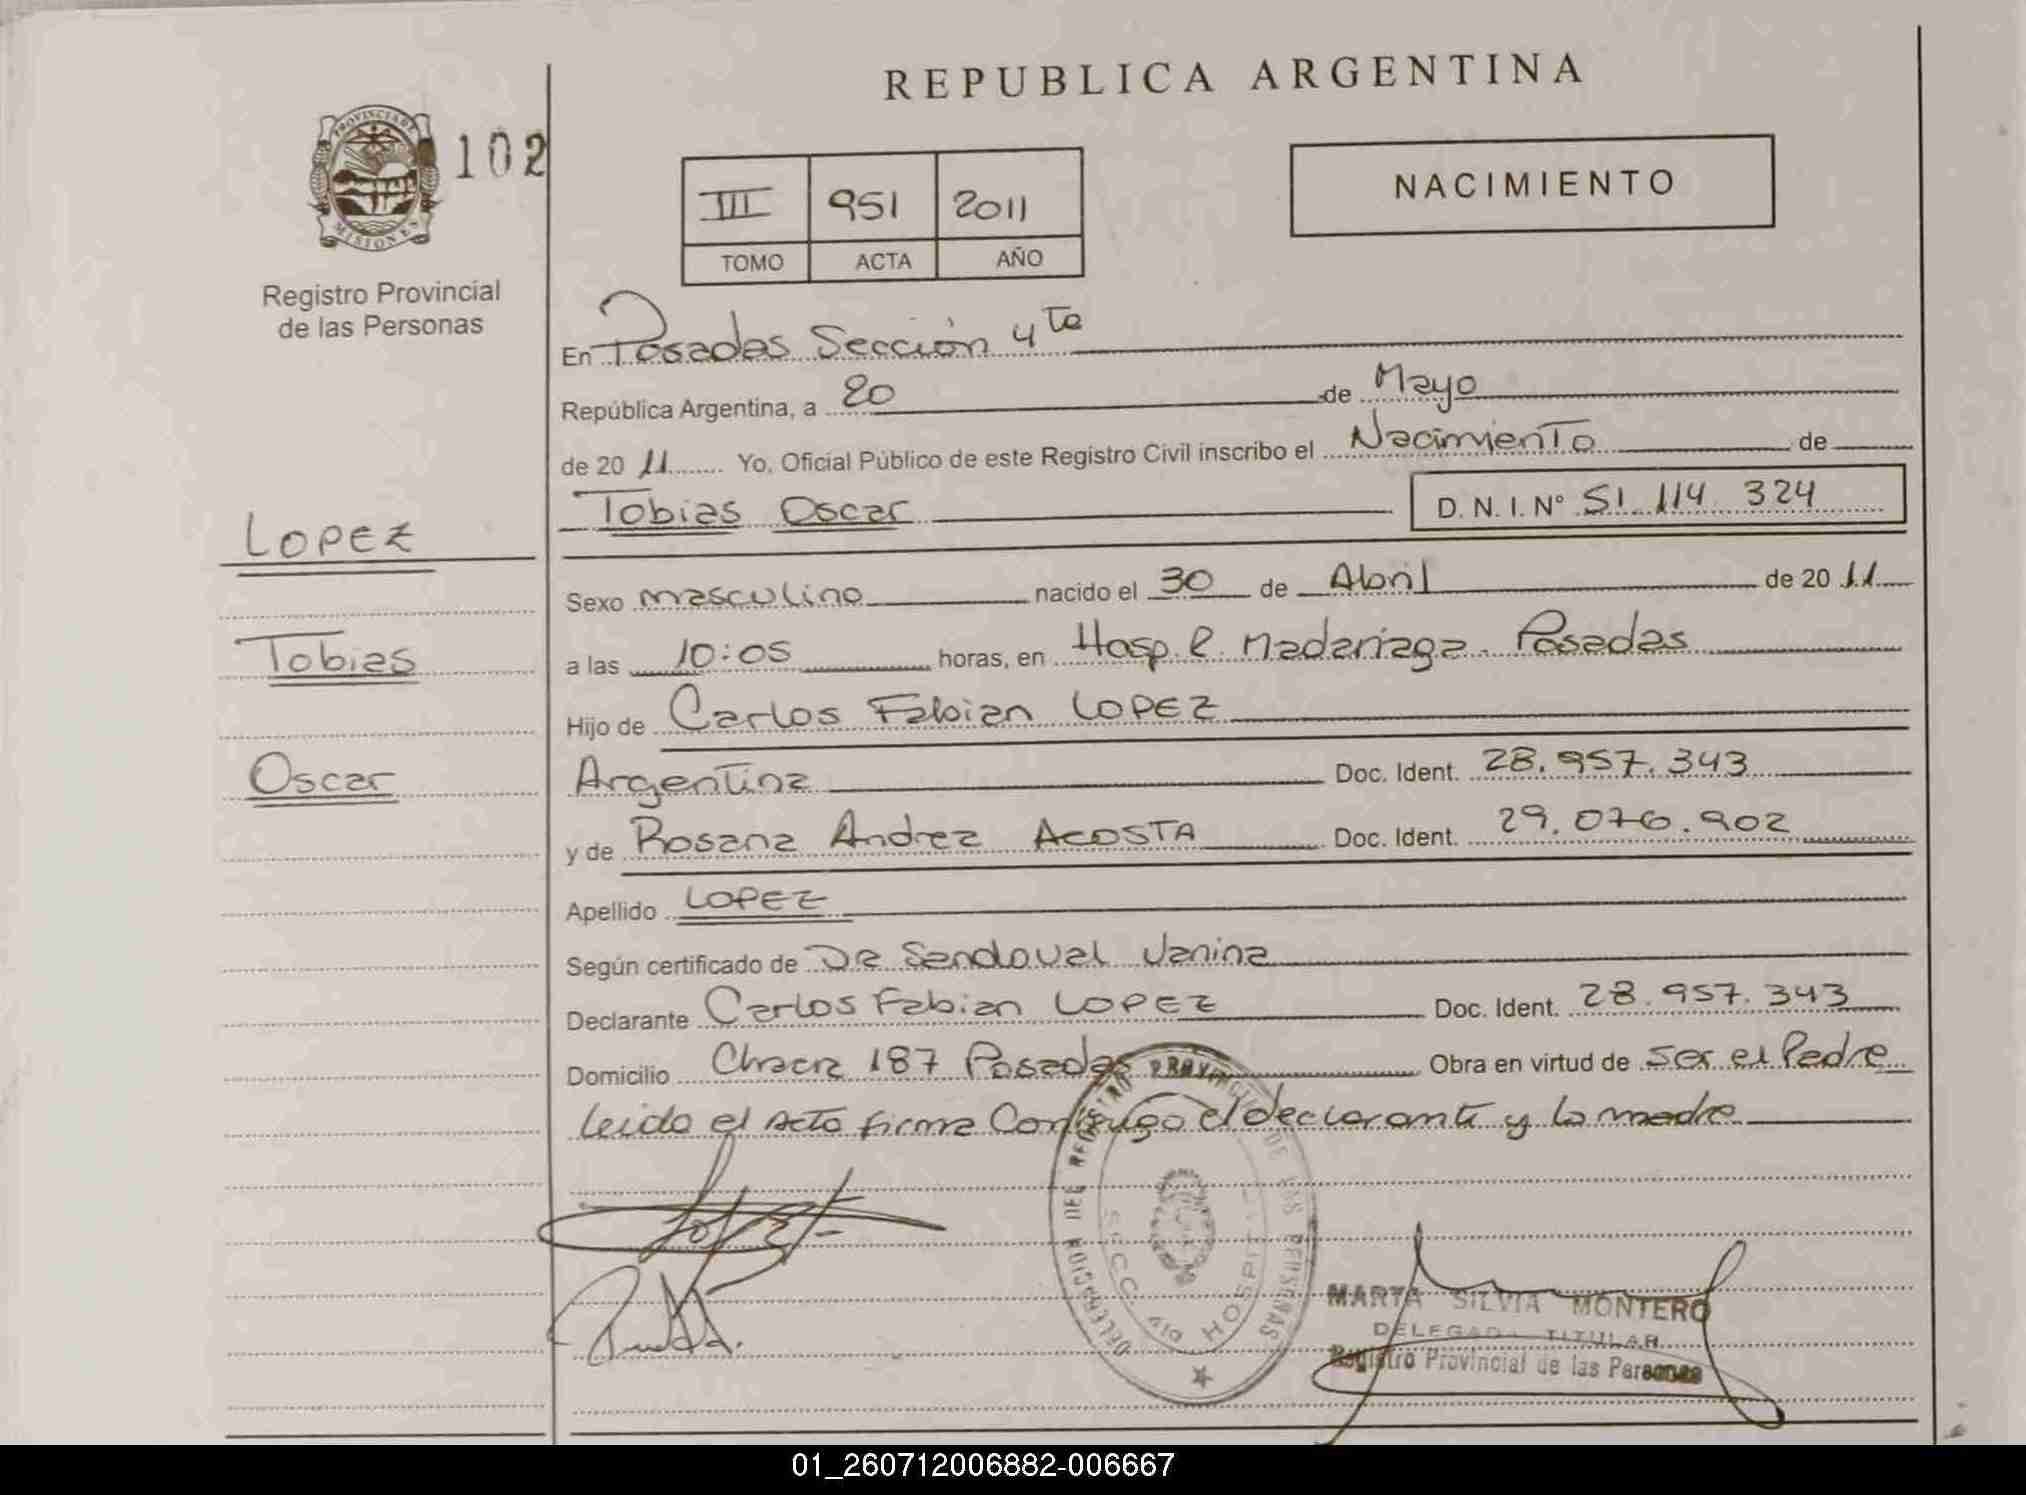 REPUBLICA ARGENTINA
PROVINCIA DE
MISIONES
102
Registro Provincial
de las Personas
III 951 2011
TOMO ACTA AÑO
NACIMIENTO
En Posadas Sección 4ta
República Argentina, a 20 de Mayo
de 20 11 Yo, Oficial Público de este Registro Civil inscribo el Nacimiento de
Tobias Oscar D. N. I. N° 51.114.324
LOPEZ
Tobias
Oscar
Sexo masculino nacido el 30 de Abril de 20 11
a las 10:05 horas, en Hosp. R. Madariaga. Posadas
Hijo de Carlos Fabian LOPEZ
Argentina Doc. Ident. 28.957.343
y de Rosana Andrea ACOSTA Doc. Ident. 29.076.902
Apellido LOPEZ
Según certificado de Dra Sandoval Janina
Declarante Carlos Fabian LOPEZ Doc. Ident. 28.957.343
Domicilio Chacra 187 Posadas Obra en virtud de ser el Padre
leido el acta firma Conmigo el declarante y la madre
DELEGACION DEL REGISTRO PROVINCIAL DE LAS PERSONAS
SECC. HOSPITAL
MARTA SILVIA MONTERO
DELEGADA TITULAR
Registro Provincial de las Personas
01_260712006882-006667